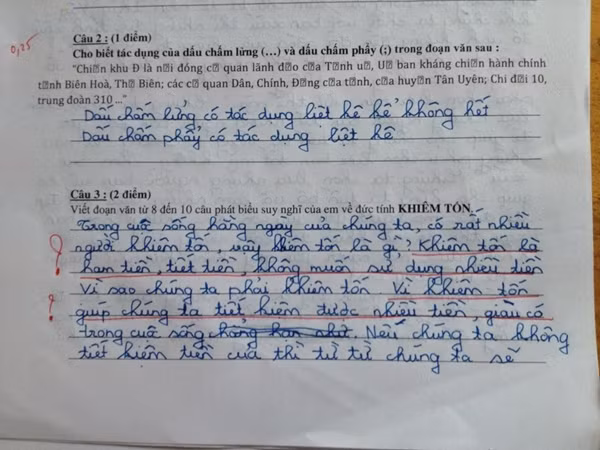 0,25
Câu 2 : (1 điểm)
Cho biết tác dụng của dấu chấm lửng (...) và dấu chấm phẩy (;) trong đoạn văn sau :
"Chi�n khu Đ là n�i đóng c� quan lãnh đ�o của T�nh u�, U� ban kháng chi�n hành chính
t�nh Biên Hoà, Th� Biên; các c� quan Dân, Chính, Đ�ng c�a t�nh, c�a huy�n Tân Uyên; Chi đ�i 10,
trung đoàn 310 ..."
Dấu chấm lửng có tác dụng liệt kê kể không hết
Dấu chấm phẩy có tác dụng liệt kê
Câu 3 : (2 điểm)
Viết đoạn văn từ 8 đến 10 câu phát biểu suy nghĩ của em về đức tính KHIÊM TỐN.
Trong cuộc sống hằng ngày của chúng ta, có rất nhiều
? người khiêm tốn, vậy khiêm tốn là gì? Khiêm tốn là
ham tiền, tiết tiền, không muốn sử dụng nhiều tiền
Vì sao chúng ta phải khiêm tốn Vì khiêm tốn
? giúp chúng ta tiết kiệm được nhiều tiền, giàu có
trong cuộc sống chẳng hạn như. Nếu chúng ta không
tiết kiệm tiền của thì từ từ chúng ta sẽ